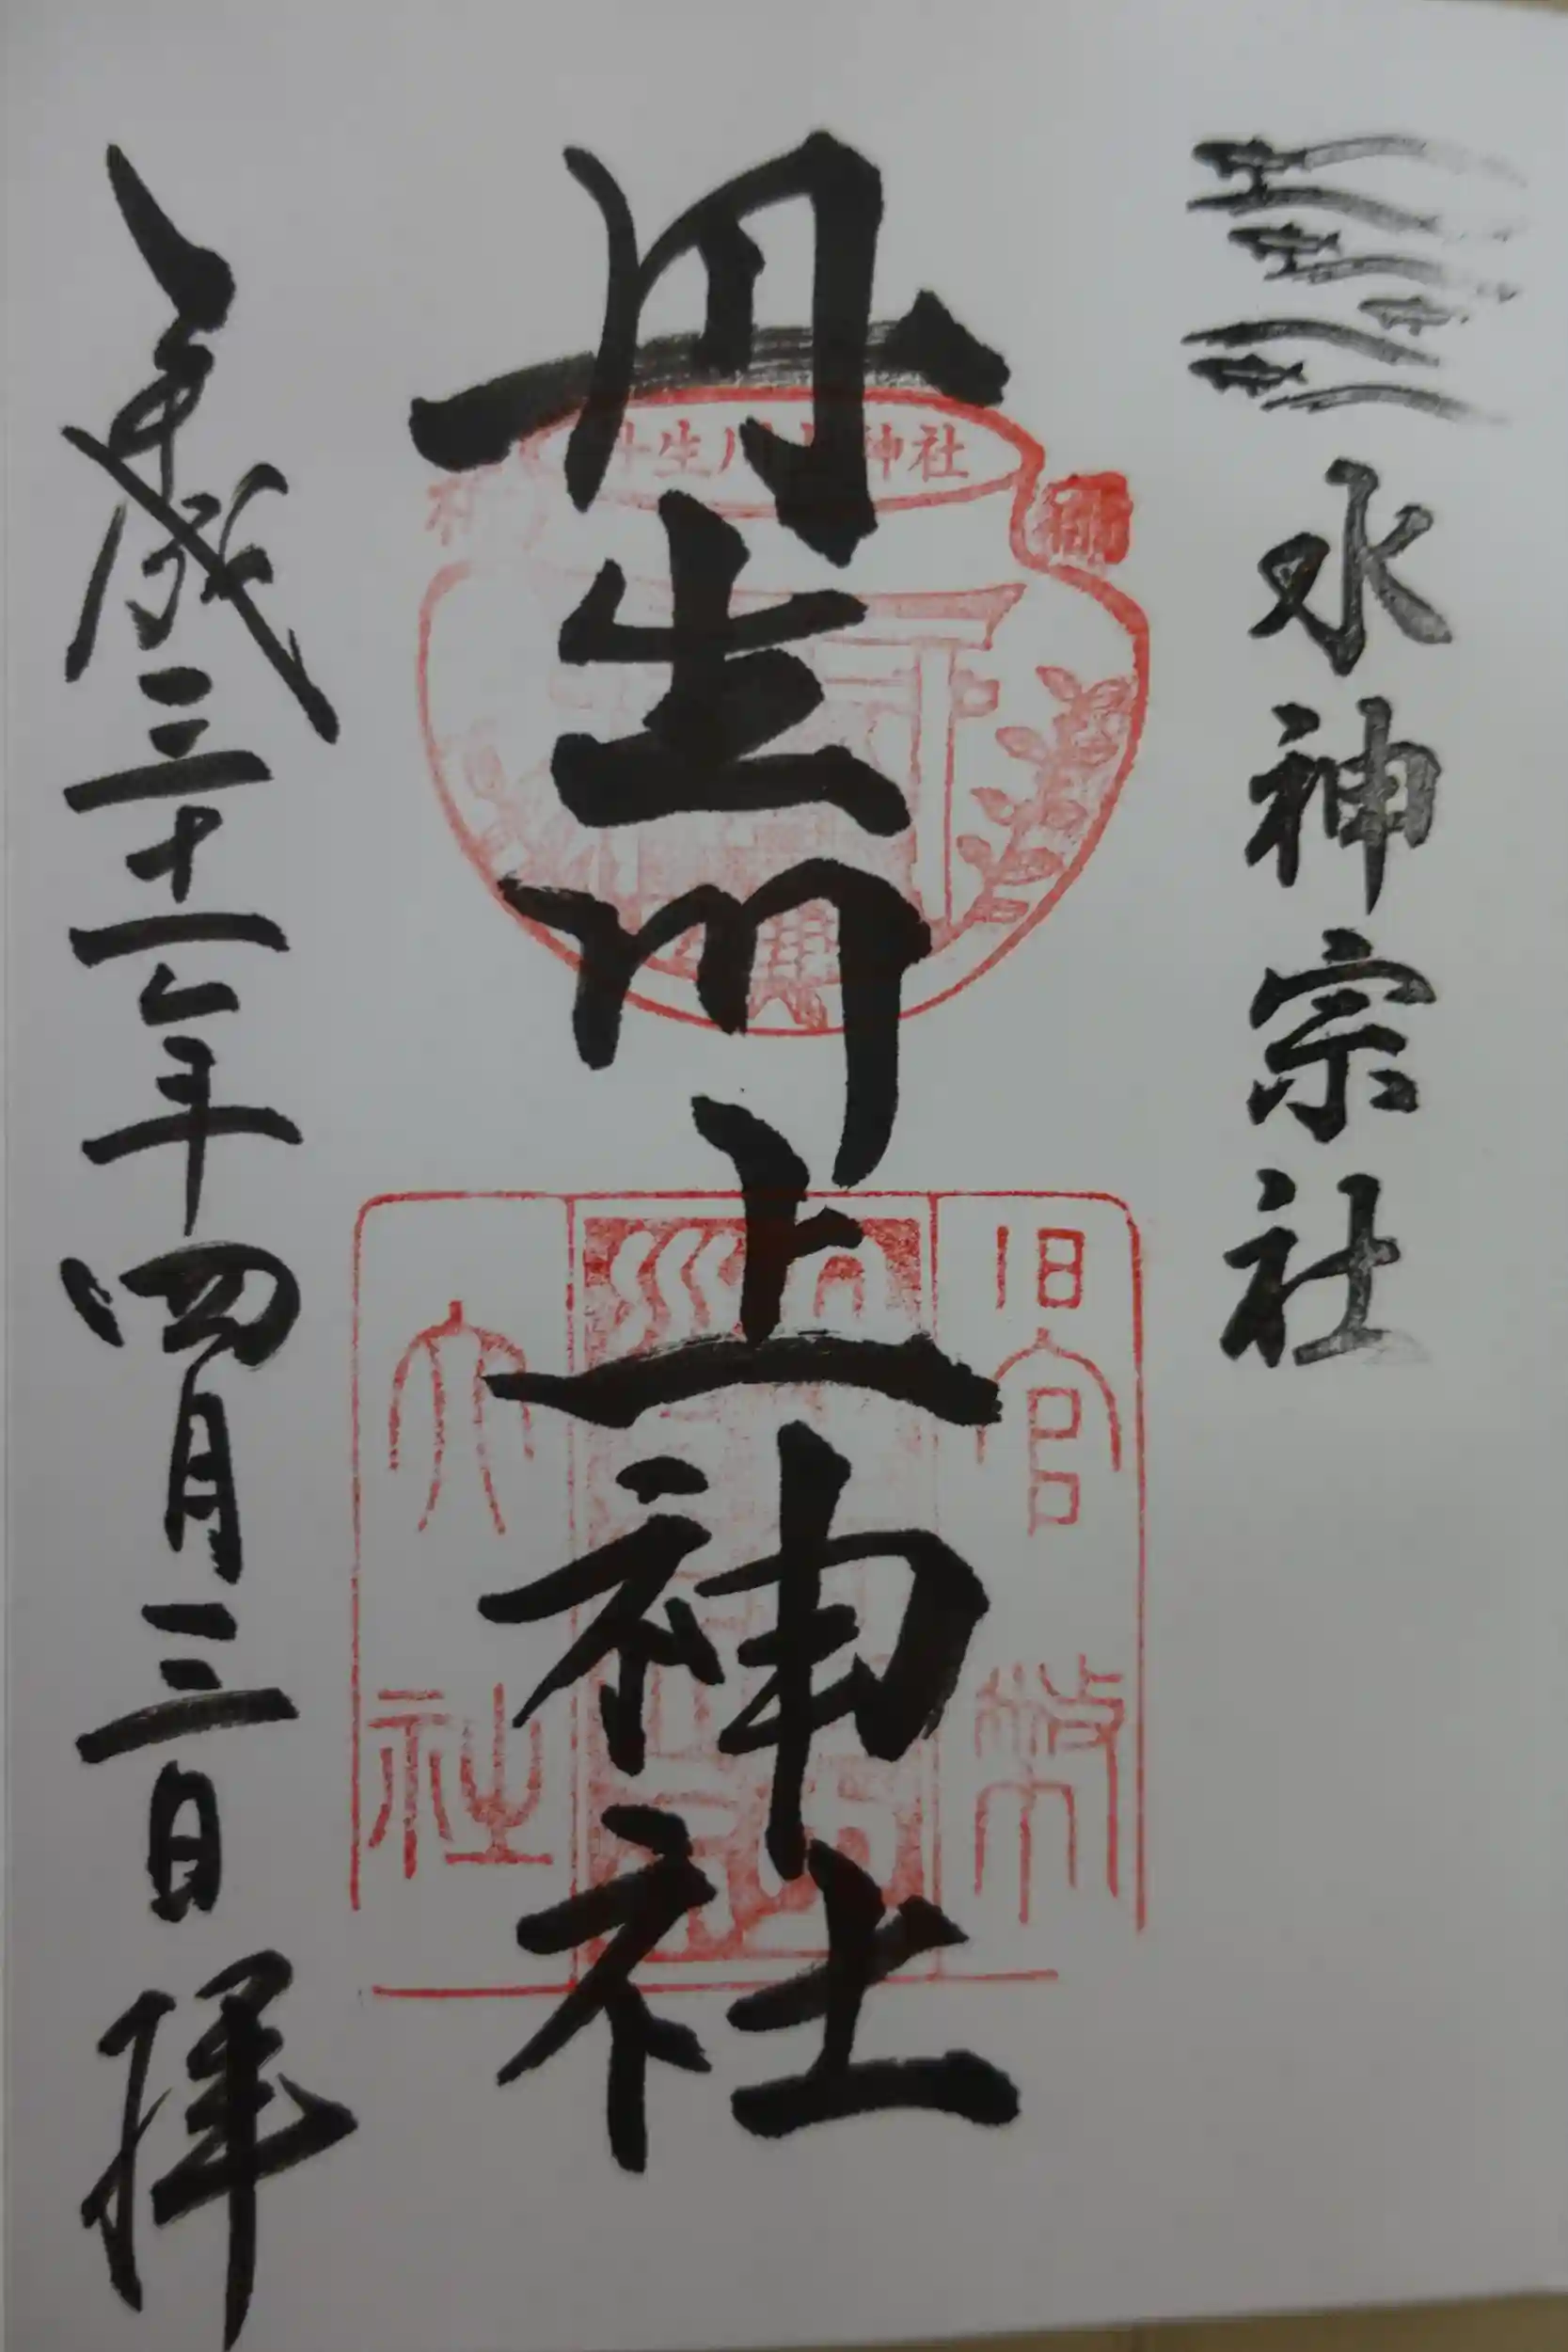 水神宗社
丹生川上神社
丹生川上神社
旧官幣
大社
平成三十一年四月三日 拝